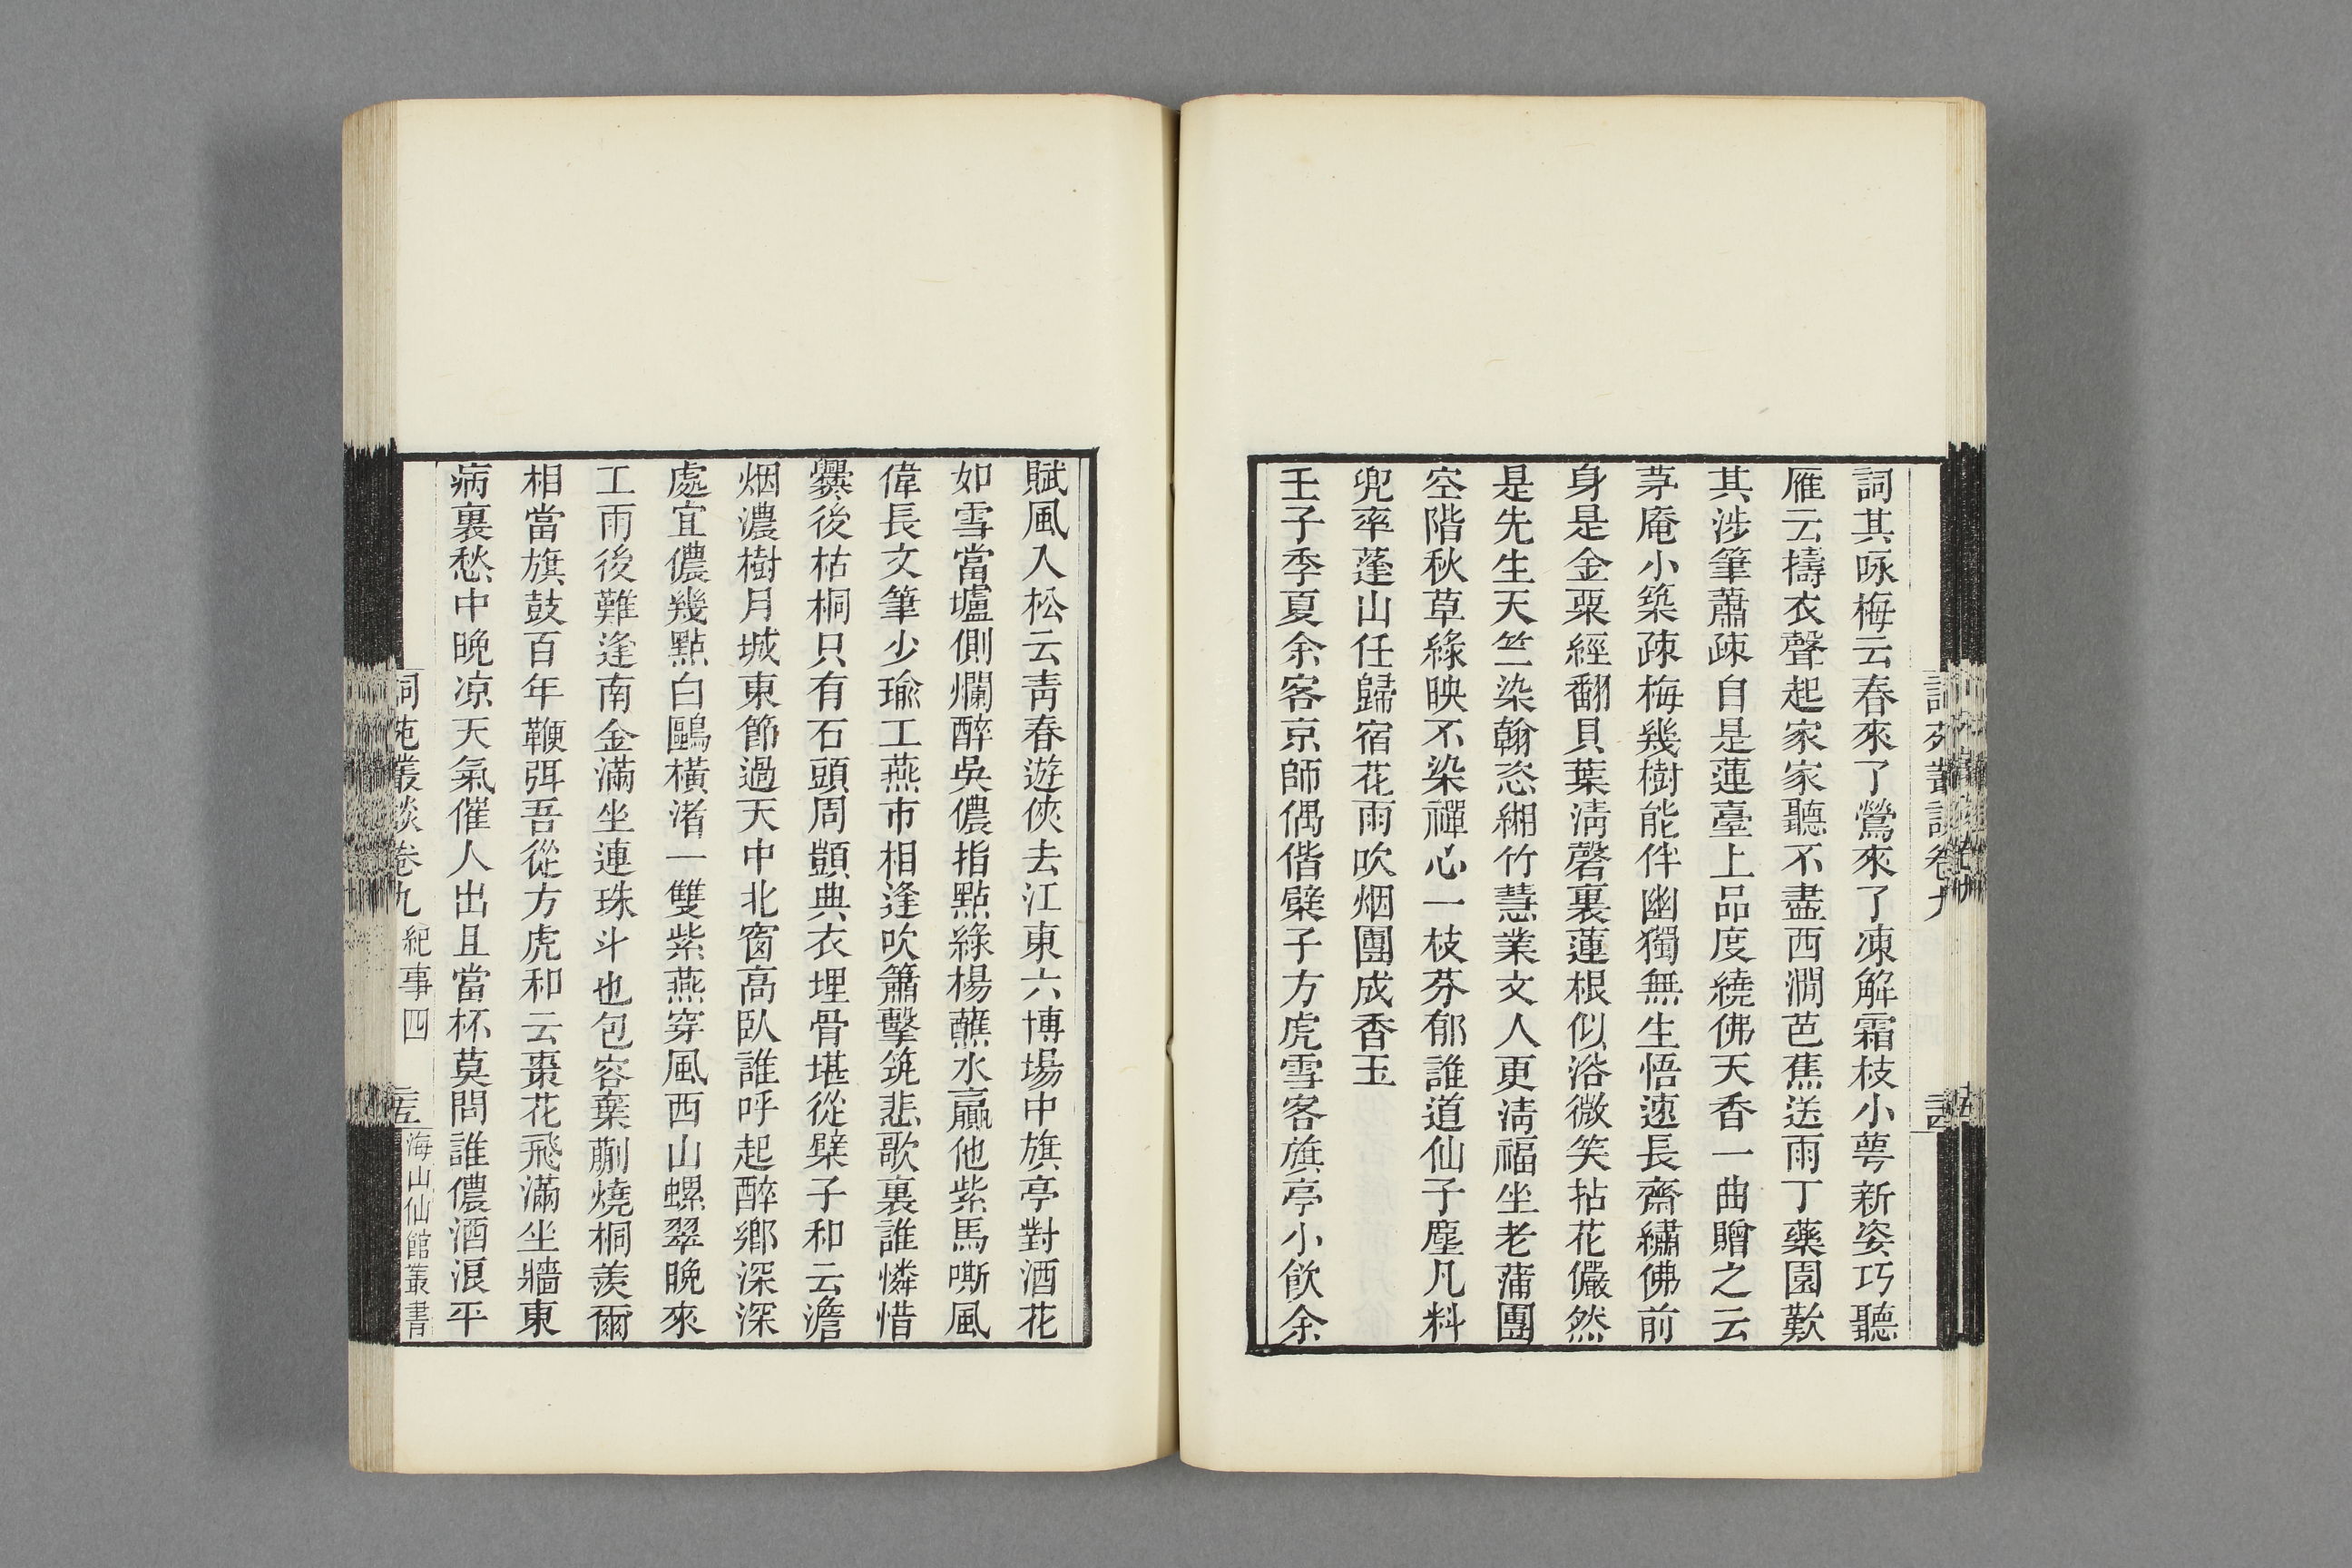 詞其咏梅云春來了鶯來了凍解霜枝小萼新姿巧聽
雁云擣衣聲起家家聽不盡西澗芭蕉送雨丁藥園歎
其涉筆蕭疎自是蓮臺上品度繞佛天香一曲贈之云
茅庵小築疎梅幾樹能伴幽獨無生悟速長齋繡佛前
身是金粟經翻貝葉淸磬裏蓮根似浴微笑拈花儼然
是先生天竺染翰恣緗竹慧業文人更淸福坐老蒲團
空階秋草綠映不染禪心一枝芬郁誰道仙子塵凡料
兜率蓬山任歸宿花雨吹烟團成香玉
壬子季夏余客京師偶偕檗子方虎雪客旗亭小飲余
賦風入松云靑春遊俠去江東六博場中旗亭對酒花
如雪當壚側爛醉吳儂指點綠楊蘸水贏他紫馬嘶風
偉長文筆少瑜工燕市相逢吹簫擊筑悲歌裏誰憐惜
爨後枯桐只有石頭周顗典衣埋骨堪從檗子和云澹
烟濃樹月城東節過天中北窗高臥誰呼起醉鄉深深
處宜儂幾點白鷗橫渚一雙紫燕穿風西山螺翠晚來
工雨後難逢南金滿坐連珠斗也包容棄蒯燒桐羨爾
相當旗鼓百年鞭弭吾從方虎和云棗花飛滿坐牆東
病裏愁中晚凉天氣催人出且當杯莫問誰儂酒浪平
詞苑叢談卷九 紀事四 海山仙館叢書